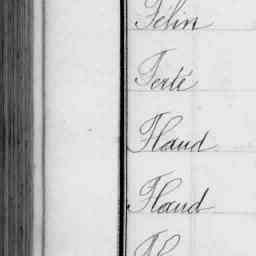 Felin
Ferté
Flaud
Flaud